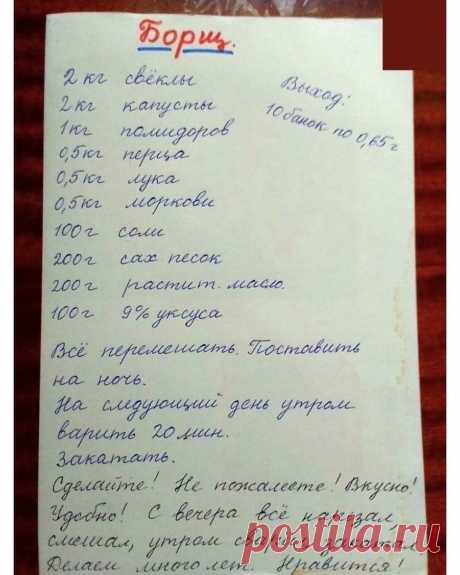 Борщ.
2 кг свёклы
2 кг капусты
1 кг помидоров
0,5 кг перца
0,5 кг лука
0,5 кг моркови
100 г соли
200 г сах песок
200 г растит. масло.
100 г 9% уксуса
Выход:
10 банок по 0,65 г
Всё перемешать. Поставить
на ночь.
На следующий день утром
варить 20 мин.
Закатать.
Сделайте! Не пожалеете! Вкусно!
Удобно! С вечера всё нарезал
смешал, утром
Делаем много лет. Нравится!
postila.ru